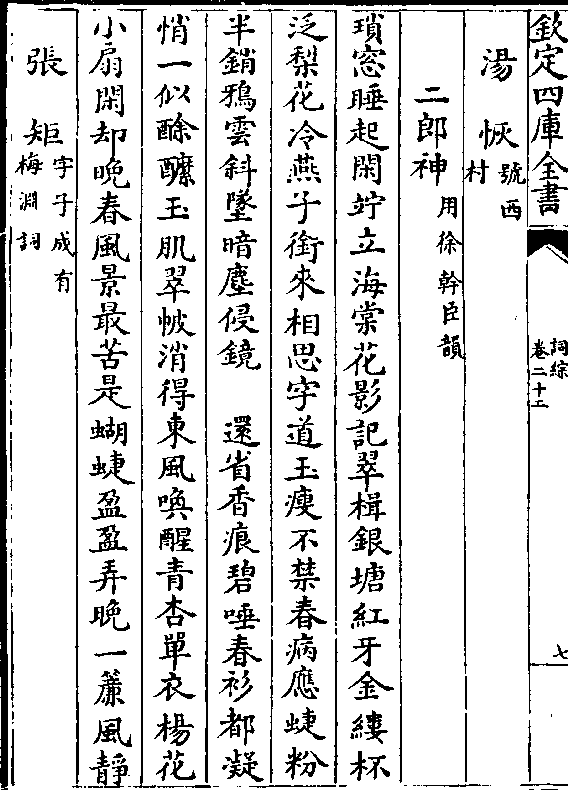 欽定四庫全書
詞綜
卷二十二
七
湯恢號西村
二郎神用徐幹臣韻
瑣窓睡起閑竚立海棠花影記翠楫銀塘紅牙金縷杯
泛梨花冷燕子銜來相思字道玉瘦不禁春病應蜨粉
半銷鴉雲斜墜暗塵侵鏡　還省香痕碧唾春衫都凝
悄一似酴醿玉肌翠帔消得東風喚醒青杏單衣楊花
小扇閑却晩春風景最苦是蝴蜨盈盈弄晩一簾風靜
張矩字子成有梅淵詞